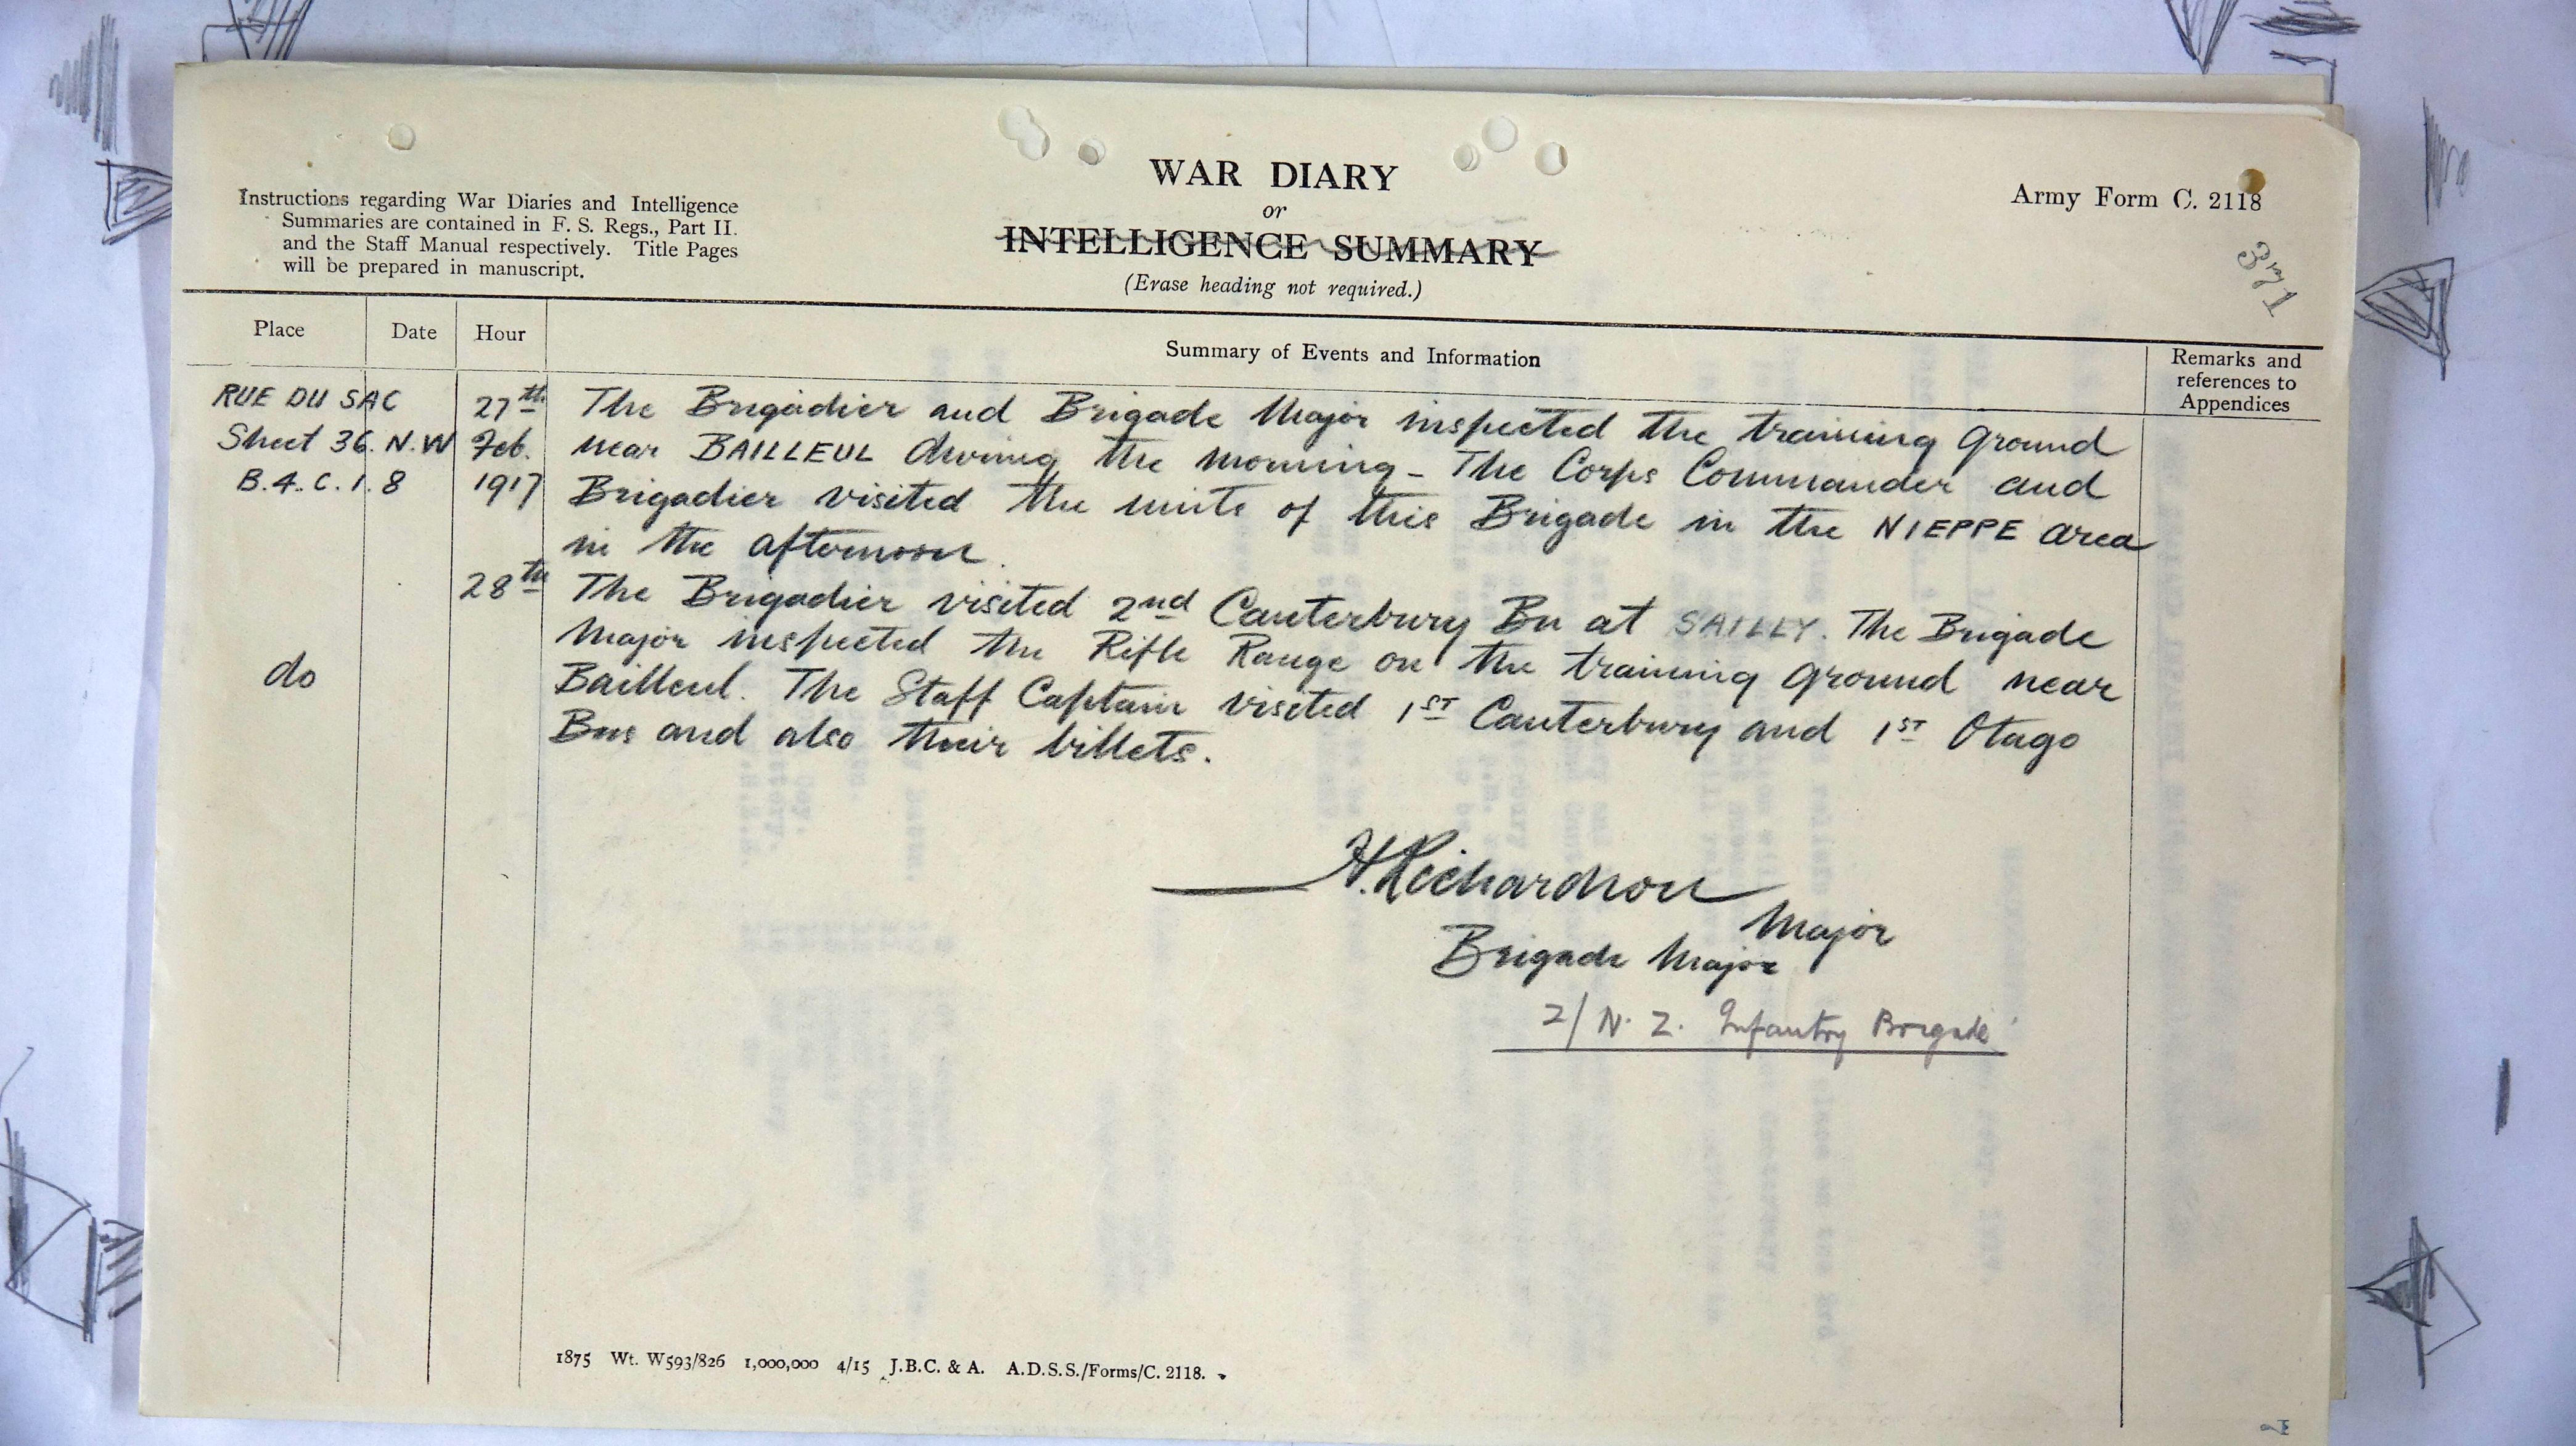 WAR DIARY
or
INTELLIGENCE SUMMARY
(Erase heading not required.)
Instructions regarding War Diaries and Intelligence
Summaries are contained in F. S. Regs., Part II.
and the Staff Manual respectively. Title Pages
will be prepared in manuscript.
Army Form C. 2118
Place
Date
Hour
Summary of Events and Information
Remarks and
references to
Appendices
RUE DU SAC
Sheet 36. N.W
B.4.C.1.8
27th
Feb.
1917
The Brigadier and Brigade Major inspected the training ground
near BAILLEUL during the morning - The Corps Commander and
Brigadier visited the units of this Brigade in the NIEPPE area
in the afternoon.
do
28th
The Brigadier visited 2nd Canterbury Bn at SAILLY. The Brigade
Major inspected the Rifle Range on the training ground near
Bailleul. The Staff Captain visited 1ST Canterbury and 1ST Otago
Bns and also their billets.
H. Richardson
Major
Brigade Major
2/ N. Z. Infantry Brigade
1875 Wt. W593/826 1,000,000 4/15 J.B.C. & A. A.D.S.S./Forms/C. 2118.